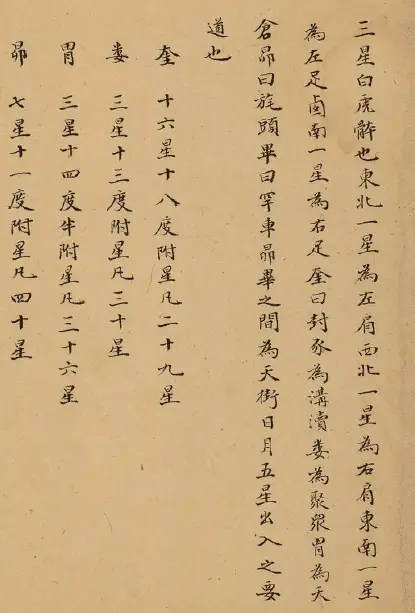 三星白虎骵也東北一星為左肩西北一星為右肩東南一星
為左足西南一星為右足奎曰封豕為溝瀆婁為聚衆胃為天
倉昴曰旄頭畢曰罕車昴畢之間為天街日月五星出入之要
道也
奎 十六星十八度附星凡二十九星
婁 三星十三度附星凡三十星
胃 三星十四度半附星凡三十六星
昴 七星十一度附星凡四十星